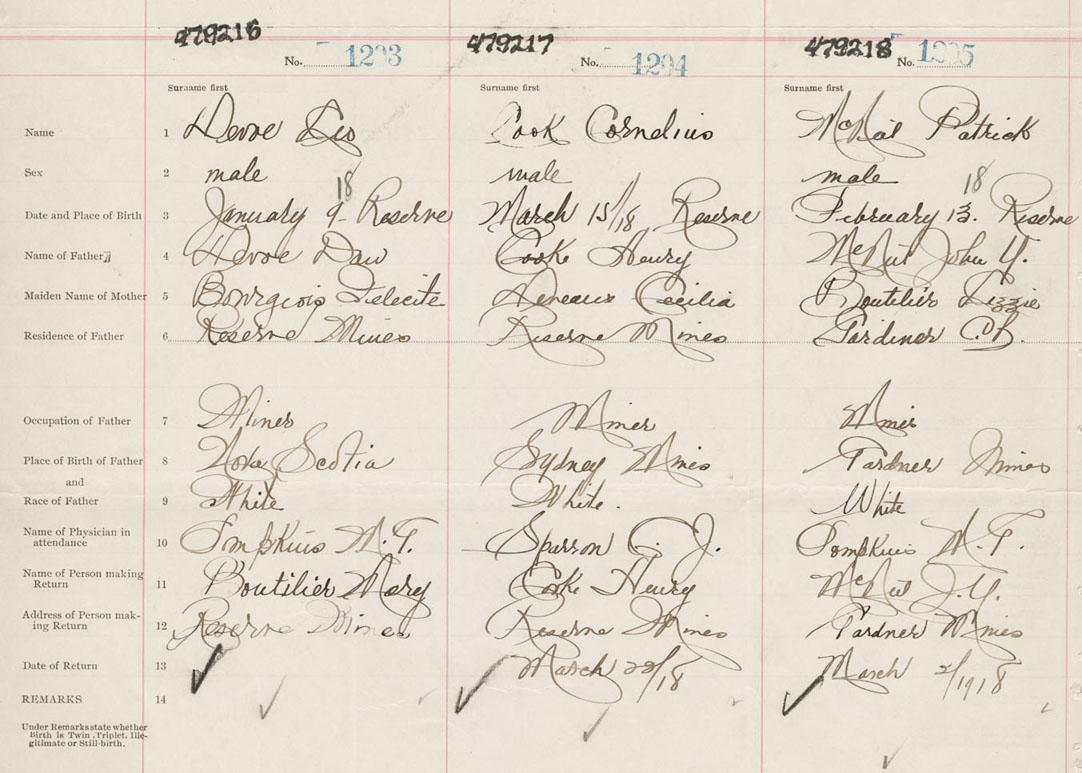 479216 479217 479218
No. 1293 No. 1294 No. 1295
Surname first Surname first Surname first
Name 1 Devoe Leo Cook Cornelius McNeil Patrick
Sex 2 male male male
18 18
Date and Place of Birth 3 January 9 Reserve March 15/18, Reserve February 13. Reserve
Name of Father 4 Devoe Dan Cooke Henry McNeil John Y.
Maiden Name of Mother 5 Bourgeois Felecite Cecilia Boutilier Lizzie
Residence of Father 6 Reserve Mines Reserve Mines Gardiner C.B.
Occupation of Father 7 Miner Miner Miner
Place of Birth of Father 8 Nova Scotia Sydney Mines Gardner Mines
and
Race of Father 9 White White. White
Name of Physician in
attendance 10 Tompkins M. T. Sparrow C. J. Tompkins M. T.
Name of Person making
Return 11 Boutilier Mary Cooke Henry McNeil J. Y.
Address of Person mak-
ing Return 12 Reserve Mines Reserve Mines Gardner Mines
Date of Return 13 March 28/18 March 2/1918
REMARKS 14
Under Remarks state whether
Birth is Twin, Triplet, Ille-
gitimate or Still-birth.